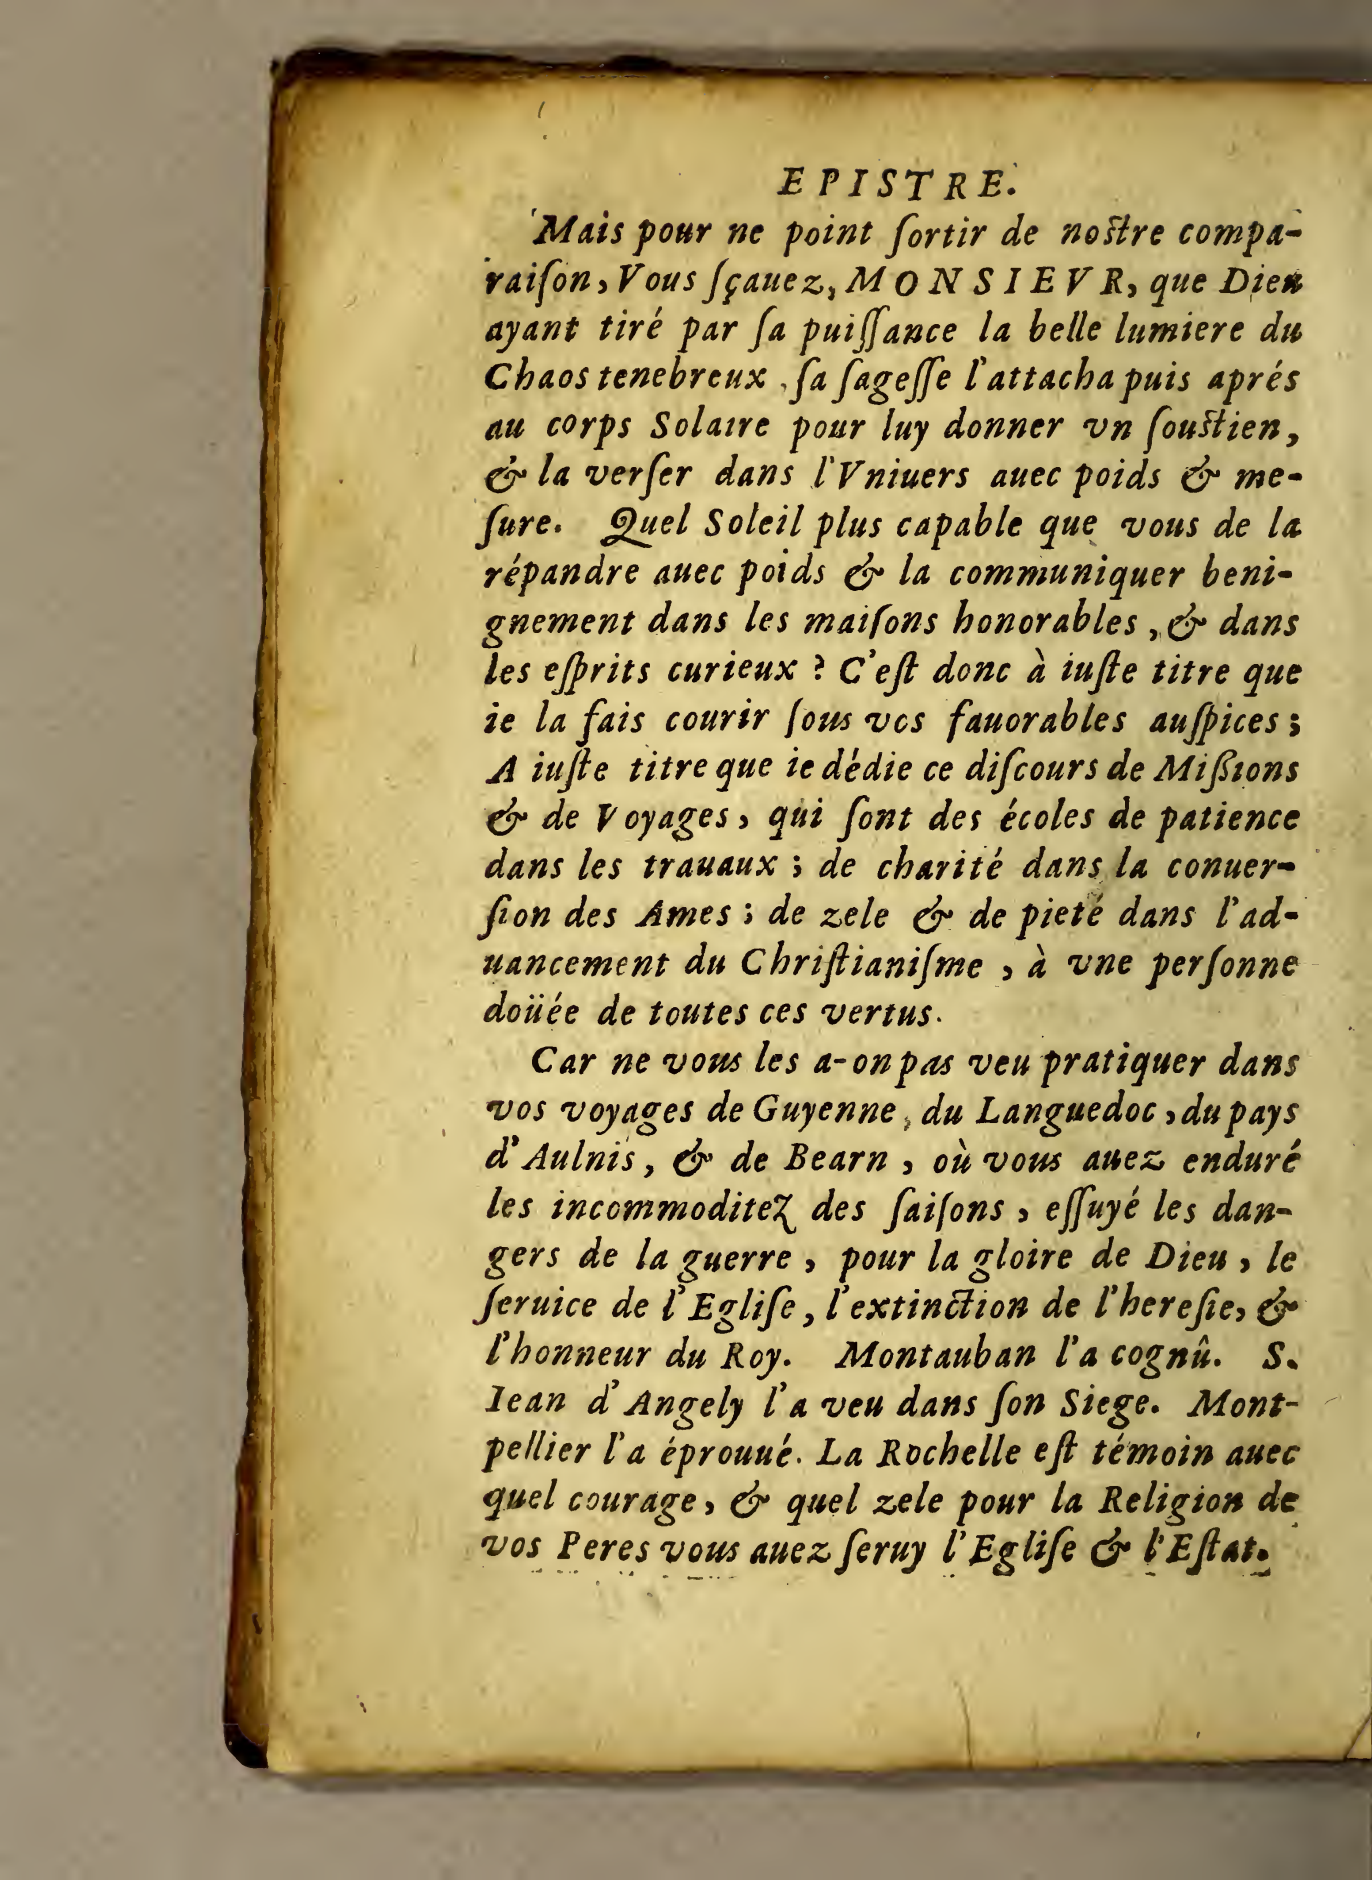 EPISTRE.
Mais pour ne point ſortir de noſtre compa-
raiſon, Vous ſçauez, MONSIEVR, que Dieu
ayant tiré par ſa puiſſance la belle lumiere du
Chaos tenebreux, ſa ſageſſe l'attacha puis aprés
au corps Solaire pour luy donner vn ſouſtien,
& la verſer dans l'Vniuers auec poids & me-
ſure. Quel Soleil plus capable que vous de la
répandre auec poids & la communiquer beni-
gnement dans les maiſons honorables, & dans
les eſprits curieux ? C'eſt donc à iuſte titre que
ie la fais courir ſous vos fauorables auſpices ;
A iuſte titre que ie dédie ce diſcours de Miſſions
& de Voyages, qui ſont des écoles de patience
dans les trauaux ; de charité dans la conuer-
ſion des Ames ; de zele & de pieté dans l'ad-
uancement du Chriſtianiſme, à vne perſonne
doüée de toutes ces vertus.
Car ne vous les a-on pas veu pratiquer dans
vos voyages de Guyenne, du Languedoc, du pays
d'Aulnis, & de Bearn, où vous auez enduré
les incommoditez des ſaiſons, eſſuyé les dan-
gers de la guerre, pour la gloire de Dieu, le
ſeruice de l'Egliſe, l'extinction de l'hereſie, &
l'honneur du Roy. Montauban l'a cognû. S.
Iean d'Angely l'a veu dans ſon Siege. Mont-
pellier l'a éprouué. La Rochelle eſt témoin auec
quel courage, & quel zele pour la Religion de
vos Peres vous auez ſeruy l'Egliſe & l'Eſtat.